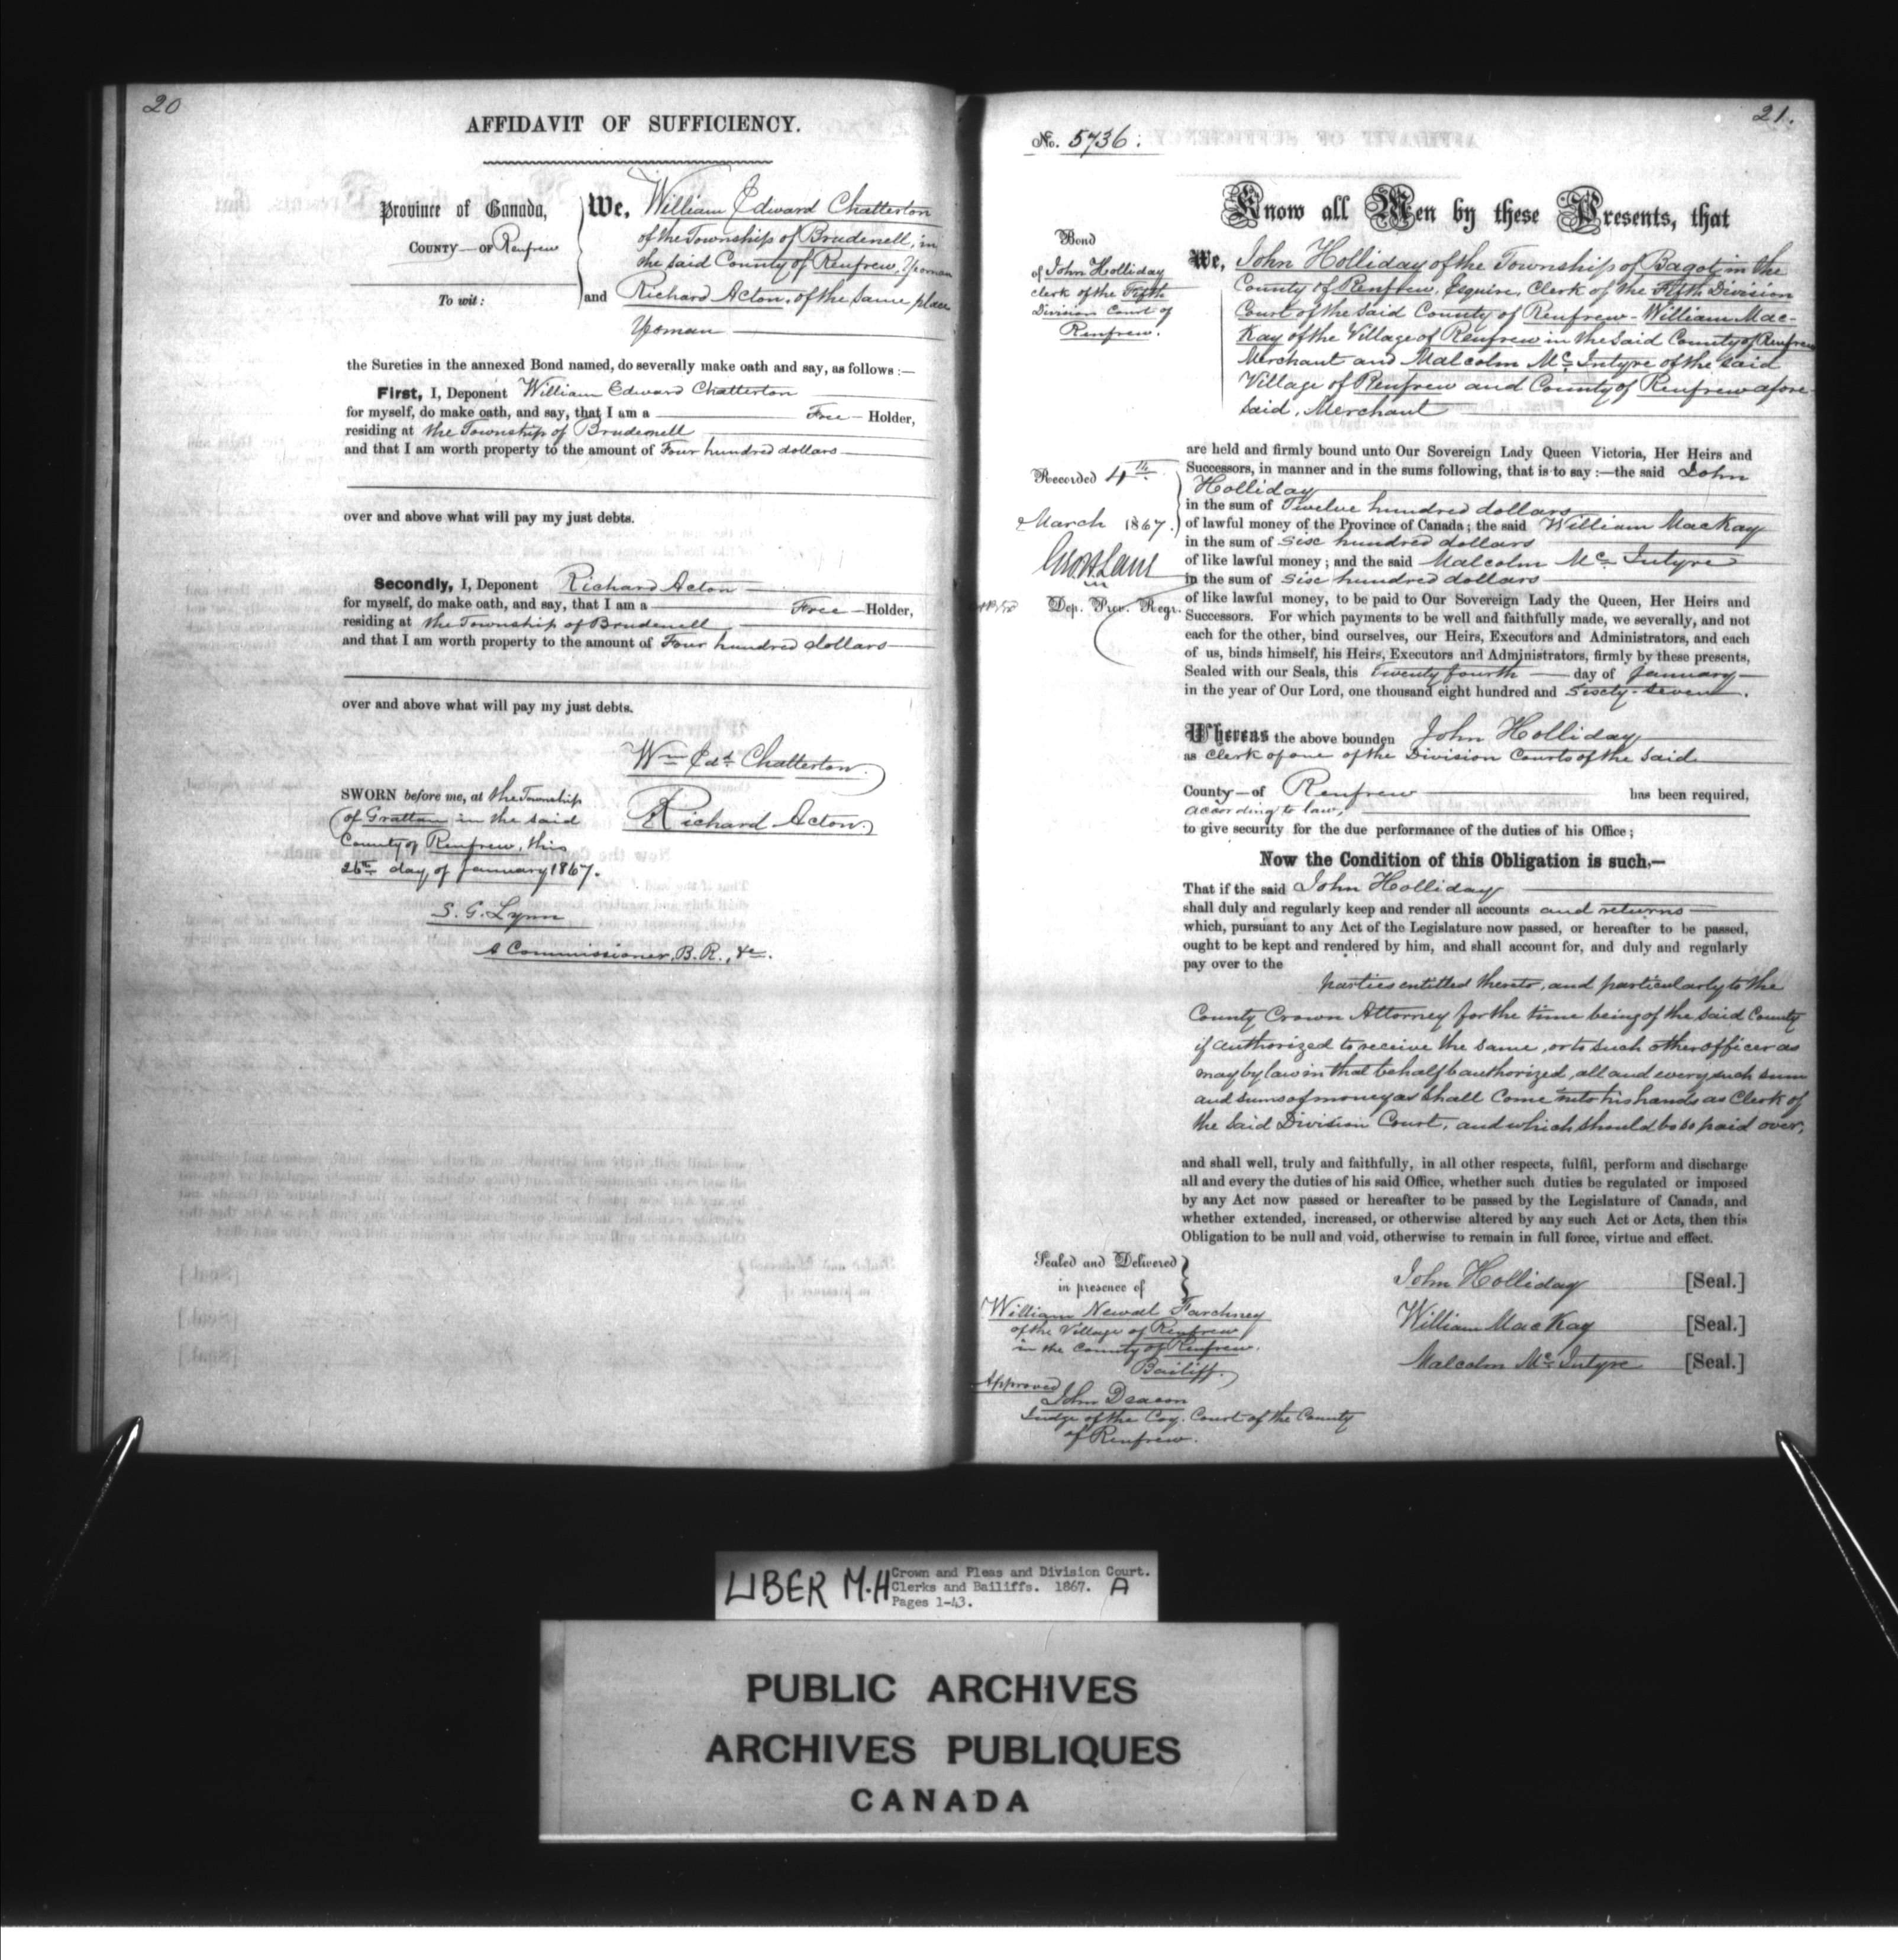 20
AFFIDAVIT OF SUFFICIENCY.
Province of Canada,
COUNTY — OF Renfrew
To wit:
We, William Edward Chatterton
of the Township of Brudenell, in
the said County of Renfrew, Yeoman
and Richard Acton, of the same place
Yeoman
the Sureties in the annexed Bond named, do severally make oath and say, as follows :—
First, I, Deponent William Edward Chatterton
for myself, do make oath, and say, that I am a Free — Holder,
residing at the Township of Brudenell
and that I am worth property to the amount of Four hundred dollars
over and above what will pay my just debts.
Secondly, I, Deponent Richard Acton
for myself, do make oath, and say, that I am a Free — Holder,
residing at the Township of Brudenell
and that I am worth property to the amount of Four hundred dollars
over and above what will pay my just debts.
Wm Edd Chatterton.
Richard Acton.
SWORN before me, at the Township
of Grattan in the said
County of Renfrew, this
26th day of January 1867.
S. G. Lynn
A Commissioner, B. R., &c.
21.
No. 5736.
Know all Men by these Presents, that
Bond
of John Holliday
Clerk of the Fifth
Division Court of
Renfrew.
We, John Holliday of the Township of Bagot in the
County of Renfrew, Esquire, Clerk of the Fifth Division
Court of the said County of Renfrew - William Mac-
Kay of the Village of Renfrew in the said County of Renfrew
Merchant and Malcolm Mc Intyre of the said
Village of Renfrew and County of Renfrew afore-
said, Merchant
are held and firmly bound unto Our Sovereign Lady Queen Victoria, Her Heirs and
Successors, in manner and in the sums following, that is to say :—the said John
Holliday
in the sum of Twelve hundred dollars
of lawful money of the Province of Canada; the said William MacKay
in the sum of Six hundred dollars
of like lawful money; and the said Malcolm Mc Intyre
in the sum of Six hundred dollars
of like lawful money, to be paid to Our Sovereign Lady the Queen, Her Heirs and
Successors. For which payments to be well and faithfully made, we severally, and not
each for the other, bind ourselves, our Heirs, Executors and Administrators, and each
of us, binds himself, his Heirs, Executors and Administrators, firmly by these presents,
Sealed with our Seals, this Twenty fourth — day of January
in the year of Our Lord, one thousand eight hundred and Sixty-Seven.
Recorded 4th
March 1867.
Dep. Prov. Regr.
Whereas the above bounden John Holliday
as Clerk of one of the Division Courts of the said
County — of Renfrew has been required,
according to law,
to give security for the due performance of the duties of his Office;
Now the Condition of this Obligation is such,—
That if the said John Holliday
shall duly and regularly keep and render all accounts and returns
which, pursuant to any Act of the Legislature now passed, or hereafter to be passed,
ought to be kept and rendered by him, and shall account for, and duly and regularly
pay over to the
parties entitled thereto, and particularly to the
County Crown Attorney for the time being of the said County
if authorized to receive the same, or to such other officer as
may by law in that behalf b authorized, all and every such sum
and sums of money as shall come into his hands as Clerk of
the said Division Court, and which should be so paid over,
and shall well, truly and faithfully, in all other respects, fulfil, perform and discharge
all and every the duties of his said Office, whether such duties be regulated or imposed
by any Act now passed or hereafter to be passed by the Legislature of Canada, and
whether extended, increased, or otherwise altered by any such Act or Acts, then this
Obligation to be null and void, otherwise to remain in full force, virtue and effect.
Sealed and Delivered
in presence of
William Newall Farchney
of the Village of Renfrew
in the County of Renfrew.
Bailiff.
Approved
John Deacon
Judge of the Coy. Court of the County
of Renfrew.
John Holliday [Seal.]
William MacKay [Seal.]
Malcolm Mc Intyre [Seal.]
LIBER M.H Crown and Pleas and Division Court.
Clerks and Bailiffs. 1867. A
Pages 1-43.
PUBLIC ARCHIVES
ARCHIVES PUBLIQUES
CANADA